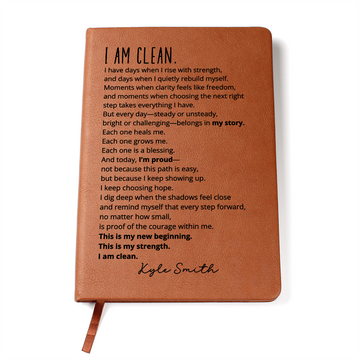 I AM CLEAN.
I have days when I rise with strength,
and days when I quietly rebuild myself.
Moments when clarity feels like freedom,
and moments when choosing the next right
step takes everything I have.
But every day—steady or unsteady,
bright or challenging—belongs in my story.
Each one heals me.
Each one grows me.
Each one is a blessing.
And today, I'm proud—
not because this path is easy,
but because I keep showing up.
I keep choosing hope.
I dig deep when the shadows feel close
and remind myself that every step forward,
no matter how small,
is proof of the courage within me.
This is my new beginning.
This is my strength.
I am clean.
Kyle Smith